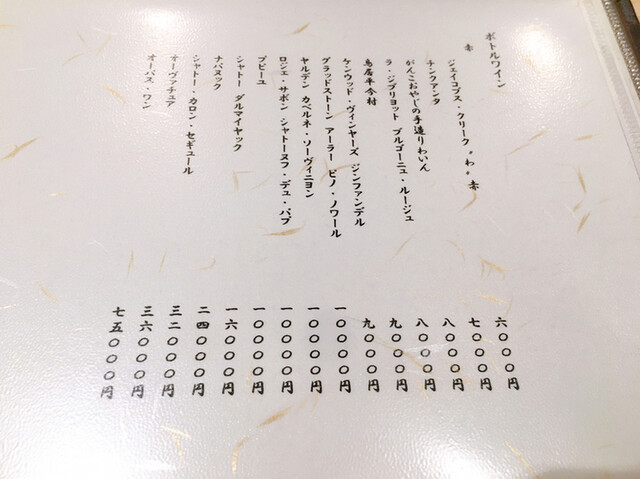 ボトルワイン
赤
ジェイコブス・クリーク “わ” 赤
六〇〇〇円
チンクアンタ
七〇〇〇円
がんこおやじの手造りわいん
八〇〇〇円
ラ・ジブリヨット ブルゴーニュ・ルージュ
八〇〇〇円
鳥居平今村
九〇〇〇円
ケンウッド・ヴィンヤーズ ジンファンデル
九〇〇〇円
グラッドストーン アーラー ピノ・ノワール
一〇〇〇〇円
ヤルデン カベルネ・ソーヴィニヨン
一〇〇〇〇円
ロジェ・サボン シャトーヌフ・デュ・パプ
一〇〇〇〇円
プピーユ
一〇〇〇〇円
シャトー ダルマイヤック
一六〇〇〇円
ナパヌック
二四〇〇〇円
シャトー・カロン・セギュール
三二〇〇〇円
オーヴァチュア
三六〇〇〇円
オーパス・ワン
七五〇〇〇円